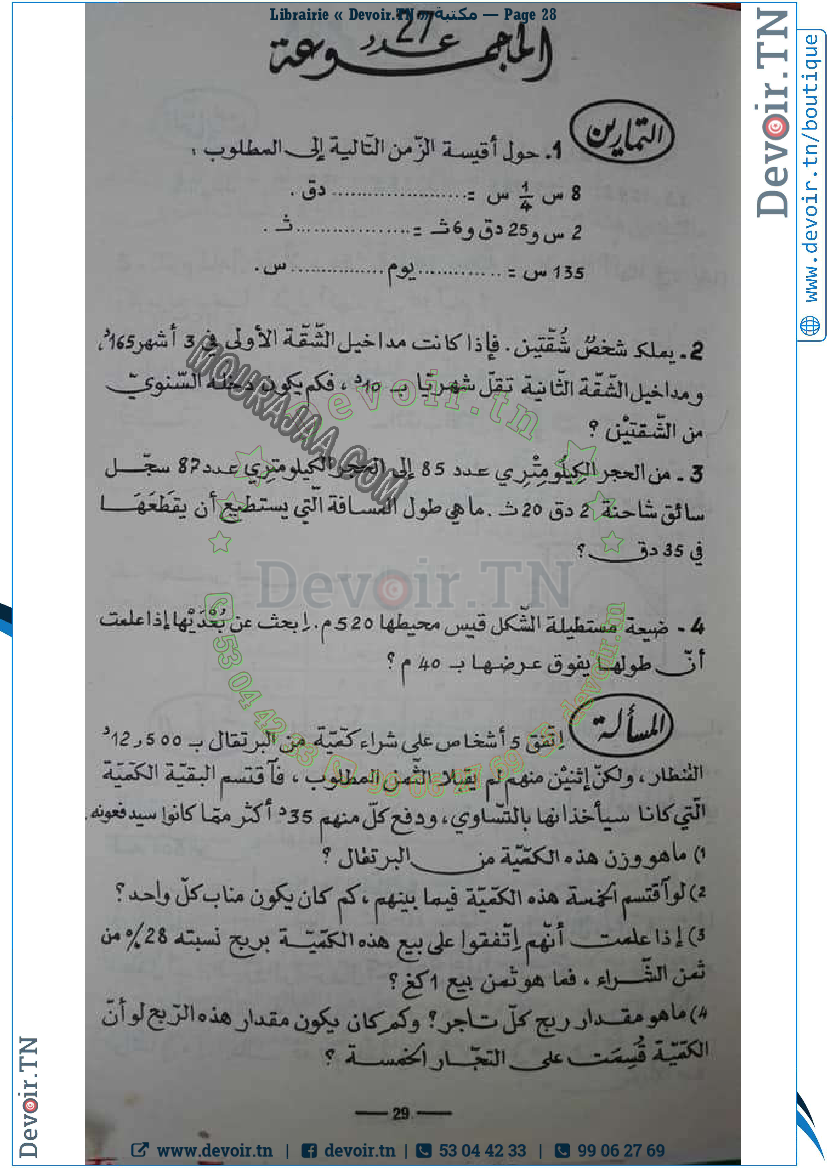 Librairie « Devoir.TN مكتبة » — Page 28
المجموعة عدد 27
التمارين
1. حول أقيسة الزّمن التّالية إلى المطلوب :
8 س 1/4 س = ...................... دق .
2 س و 25 دق و 6 ث = ................... ث .
135 س = .............. يوم ............... س .
2 ـ يملك شخصٌ شُقّتين . فإذا كانت مداخيل الشّقّة الأولى في 3 أشهر 165د،
ومداخيل الشّقّة الثّانية تقلّ شهريّا بـ 10د ، فكم يكون دخله السّنويّ
من الشّقتيْن ؟
3 ـ من الحجر الكِيلُومِتْرِي عدد 85 إلى الحجر الكيلومتري عدد 87 سجّل
سائق شاحنة 2 دق 20 ث . ما هي طول المسافة الّتي يستطيع أن يقطَعَهَا
في 35 دق ؟
4 ـ ضيعة مستطيلة الشّكل قيس محيطها 520 م . اِبحث عن بُعْدَيْها إذا علمت
أنّ طولها يفوق عرضها بـ 40 م ؟
المسألة
اِتّفق 5 أشخاص على شراء كمّيّة من البرتقال بـ 12,500د
القنطار ، ولكنّ إثنيْن منهم لم يقبلا الثّمن المطلوب ، فٱقتسم البقيّة الكميّة
الّتي كانا سيأخذانها بالتّساوي ، ودفع كلّ منهم 35د أكثر ممّا كانوا سيدفعونه.
1) ما هو وزن هذه الكمّيّة من البرتقال ؟
2) لو ٱقتسم الخمسة هذه الكمّيّة فيما بينهم ، كم كان يكون مناب كلّ واحد ؟
3) إذا علمت أنّهم اِتّفقوا على بيع هذه الكمّيّة بربح نسبته 28 % من
ثمن الشّراء ، فما هو ثمن بيع 1 كغ ؟
4) ما هو مقدار ربح كلّ تاجر ؟ وكم كان يكون مقدار هذه الرّبح لو أنّ
الكمّيّة قُسِمَت على التجّار الخمسة ؟
29
MOURAJAA.COM
devoir.tn
Devoir.TN
53 04 42 33
99 06 27 69
devoir.tn
Devoir.TN
www.devoir.tn/boutique
Devoir.TN
www.devoir.tn | devoir.tn | 53 04 42 33 | 99 06 27 69